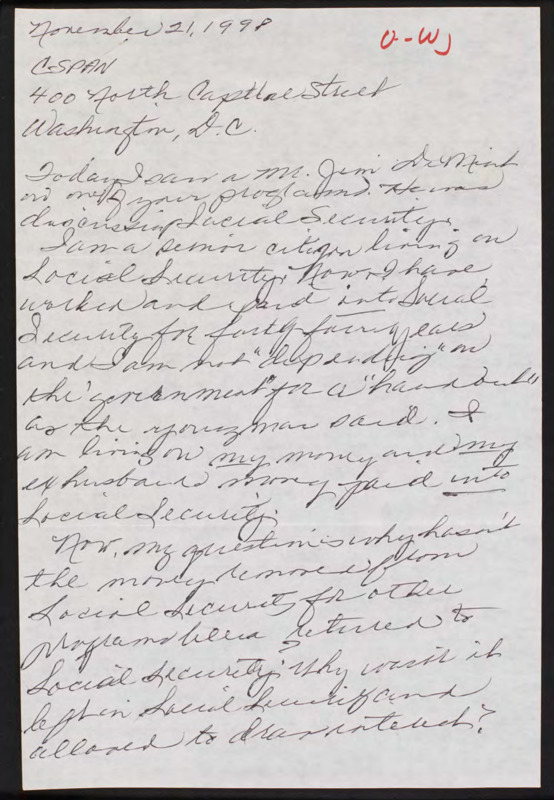 November 21, 1998
O-WJ
C-SPAN
400 North Capitol Street
Washington, D.C.
Today I saw a Mr. Jim DeMint
on one of your programs. He was
discussing Social Security.
I am a senior citizen living on
Social Security. Now I have
worked and paid into Social
Security for forty four years
and I am not "depending" on
the "government" for a "hand out"
as the young man said. I
am living on my money and my
ex husband money paid into
Social Security.
Now, my question is why hasn't
the money removed from
Social Security for other
programs been returned to
Social Security? Why wasn't it
left in Social Security and
allowed to draw interest?